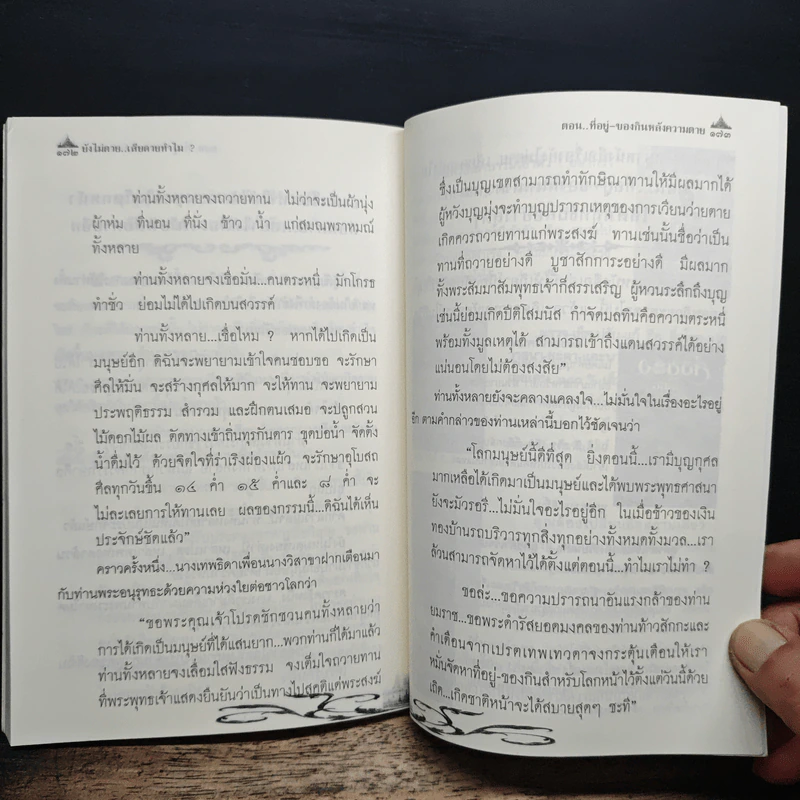 ๑๗๒ ยังไม่ตาย..เสียดายทำไม ?
ท่านทั้งหลายจงถวายทาน ไม่ว่าจะเป็นผ้านุ่ง
ผ้าห่ม ที่นอน ที่นั่ง ข้าว น้ำ แก่สมณพราหมณ์
ทั้งหลาย
ท่านทั้งหลายจงเชื่อมั่น...คนตระหนี่ มักโกรธ
ทำชั่ว ย่อมไม่ได้ไปเกิดบนสวรรค์
ท่านทั้งหลาย...เชื่อไหม ? หากได้ไปเกิดเป็น
มนุษย์อีก ดิฉันจะพยายามเข้าใจคนชอบขอ จะรักษา
ศีลให้มั่น จะสร้างกุศลให้มาก จะให้ทาน จะพยายาม
ประพฤติธรรม สำรวม และฝึกตนเสมอ จะปลูกสวน
ไม้ดอกไม้ผล ตัดทางเข้าถิ่นทุรกันดาร ขุดบ่อน้ำ จัดตั้ง
น้ำดื่มไว้ ด้วยจิตใจที่ร่าเริงผ่องแผ้ว จะรักษาอุโบสถ
ศีลทุกวันขึ้น ๑๔ ค่ำ ๑๕ ค่ำและ ๘ ค่ำ จะ
ไม่ละเลยการให้ทานเลย ผลของกรรมนี้...ดิฉันได้เห็น
ประจักษ์ชัดแล้ว”
คราวครั้งหนึ่ง...นางเทพธิดาเพื่อนนางวิสาขาฝากเตือนมา
กับท่านพระอนุรุทธะด้วยความห่วงใยต่อชาวโลกว่า
“ขอพระคุณเจ้าโปรดชักชวนคนทั้งหลายว่า
การได้เกิดเป็นมนุษย์ที่ได้แสนยาก...พวกท่านก็ได้มาแล้ว
ท่านทั้งหลายจงเลื่อมใสฟังธรรม จงเต็มใจถวายทาน
ที่พระพุทธเจ้าแสดงยืนยันว่าเป็นทางไปสุคติแด่พระสงฆ์
ตอน..ที่อยู่-ของกินหลังความตาย ๑๗๓
ซึ่งเป็นบุญเขตสามารถทำทักษิณาทานให้มีผลมากได้
ผู้หวังบุญมุ่งจะทำบุญปรารภเหตุของการเวียนว่ายตาย
เกิดควรถวายทานแก่พระสงฆ์ ทานเช่นนั้นชื่อว่าเป็น
ทานที่ถวายอย่างดี บูชาสักการะอย่างดี มีผลมาก
ทั้งพระสัมมาสัมพุทธเจ้าก็สรรเสริญ ผู้หวนระลึกถึงบุญ
เช่นนี้ย่อมเกิดปีติโสมนัส กำจัดมลทินคือความตระหนี่
พร้อมทั้งมูลเหตุได้ สามารถเข้าถึงแดนสวรรค์ได้อย่าง
แน่นอนโดยไม่ต้องสงสัย”
ท่านทั้งหลายยังจะคลางแคลงใจ...ไม่มั่นใจในเรื่องอะไรอยู่
อีก ตามคำกล่าวของท่านเหล่านี้บอกไว้ชัดเจนว่า
“โลกมนุษย์นี้ดีที่สุด ยิ่งตอนนี้...เรามีบุญกุศล
มากเหลือได้เกิดมาเป็นมนุษย์และได้พบพระพุทธศาสนา
ยังจะมัวรอรี...ไม่มั่นใจอะไรอยู่อีก ในเมื่อข้าวของเงิน
ทองบ้านรถบริวารทุกสิ่งทุกอย่างทั้งหมดทั้งมวล...เรา
ล้วนสามารถจัดหาไว้ได้ตั้งแต่ตอนนี้...ทำไมเราไม่ทำ ?
ขอล่ะ...ขอความปรารถนาอันแรงกล้าของท่าน
ยมราช...ขอพระดำรัสยอดมงคลของท่านท้าวสักกะและ
คำเตือนจากเปรตเทพเทวดาจงกระตุ้นเตือนให้เรา
หมั่นจัดหาที่อยู่-ของกินสำหรับโลกหน้าไว้ตั้งแต่วันนี้ด้วย
เถิด...เกิดชาติหน้าจะได้สบายสุดๆ ซะที”